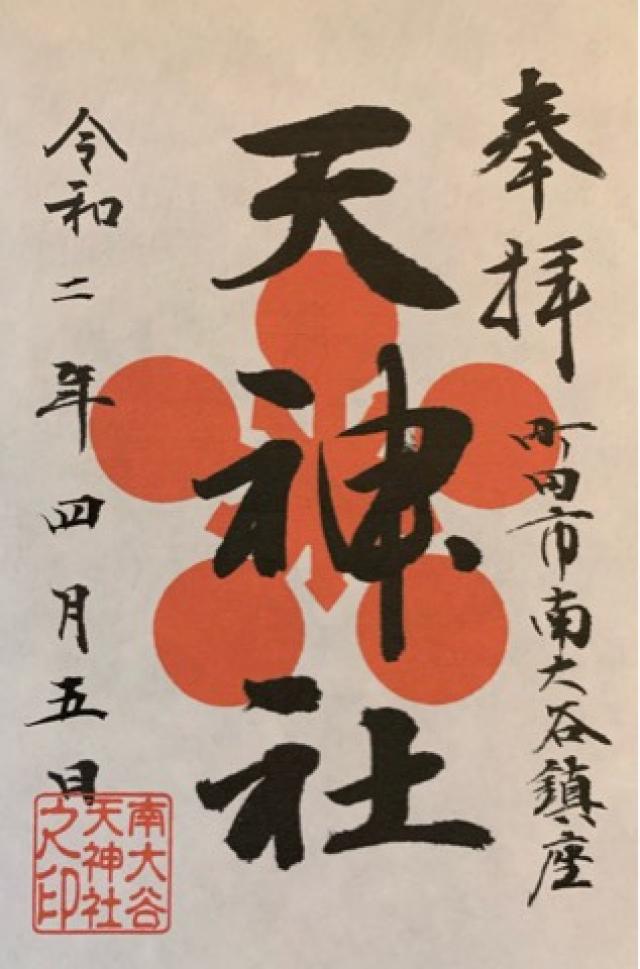 奉拝
町田市南大谷鎮座
天神社
令和二年四月五日
南大谷
天神社
之印